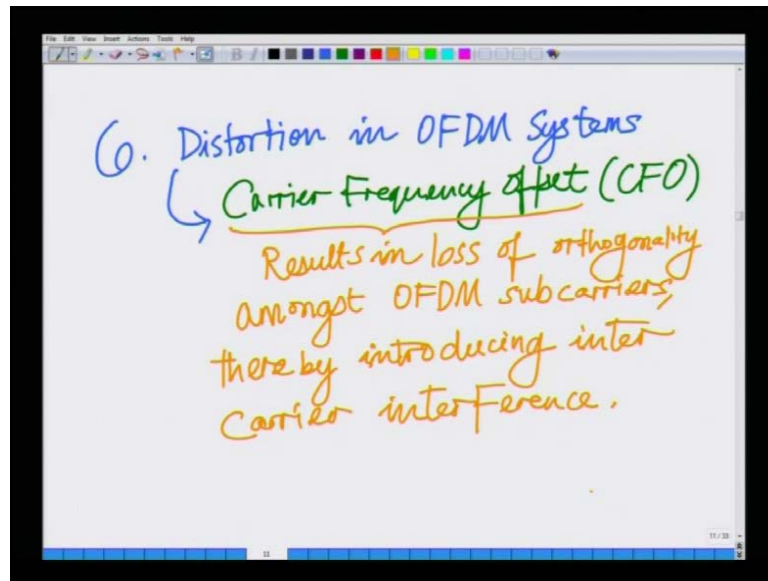 File Edit View Insert Actions Tools Help
6. Distortion in OFDM Systems
Carrier Frequency offset (CFO)
Results in loss of orthogonality
amongst OFDM subcarriers,
thereby introducing inter
Carrier interference.
11/33
11